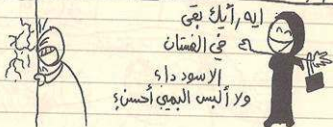 ايه رأيك بقى
في الفستان
الاسود داء
ولا ألبس البمبي أحسن؟